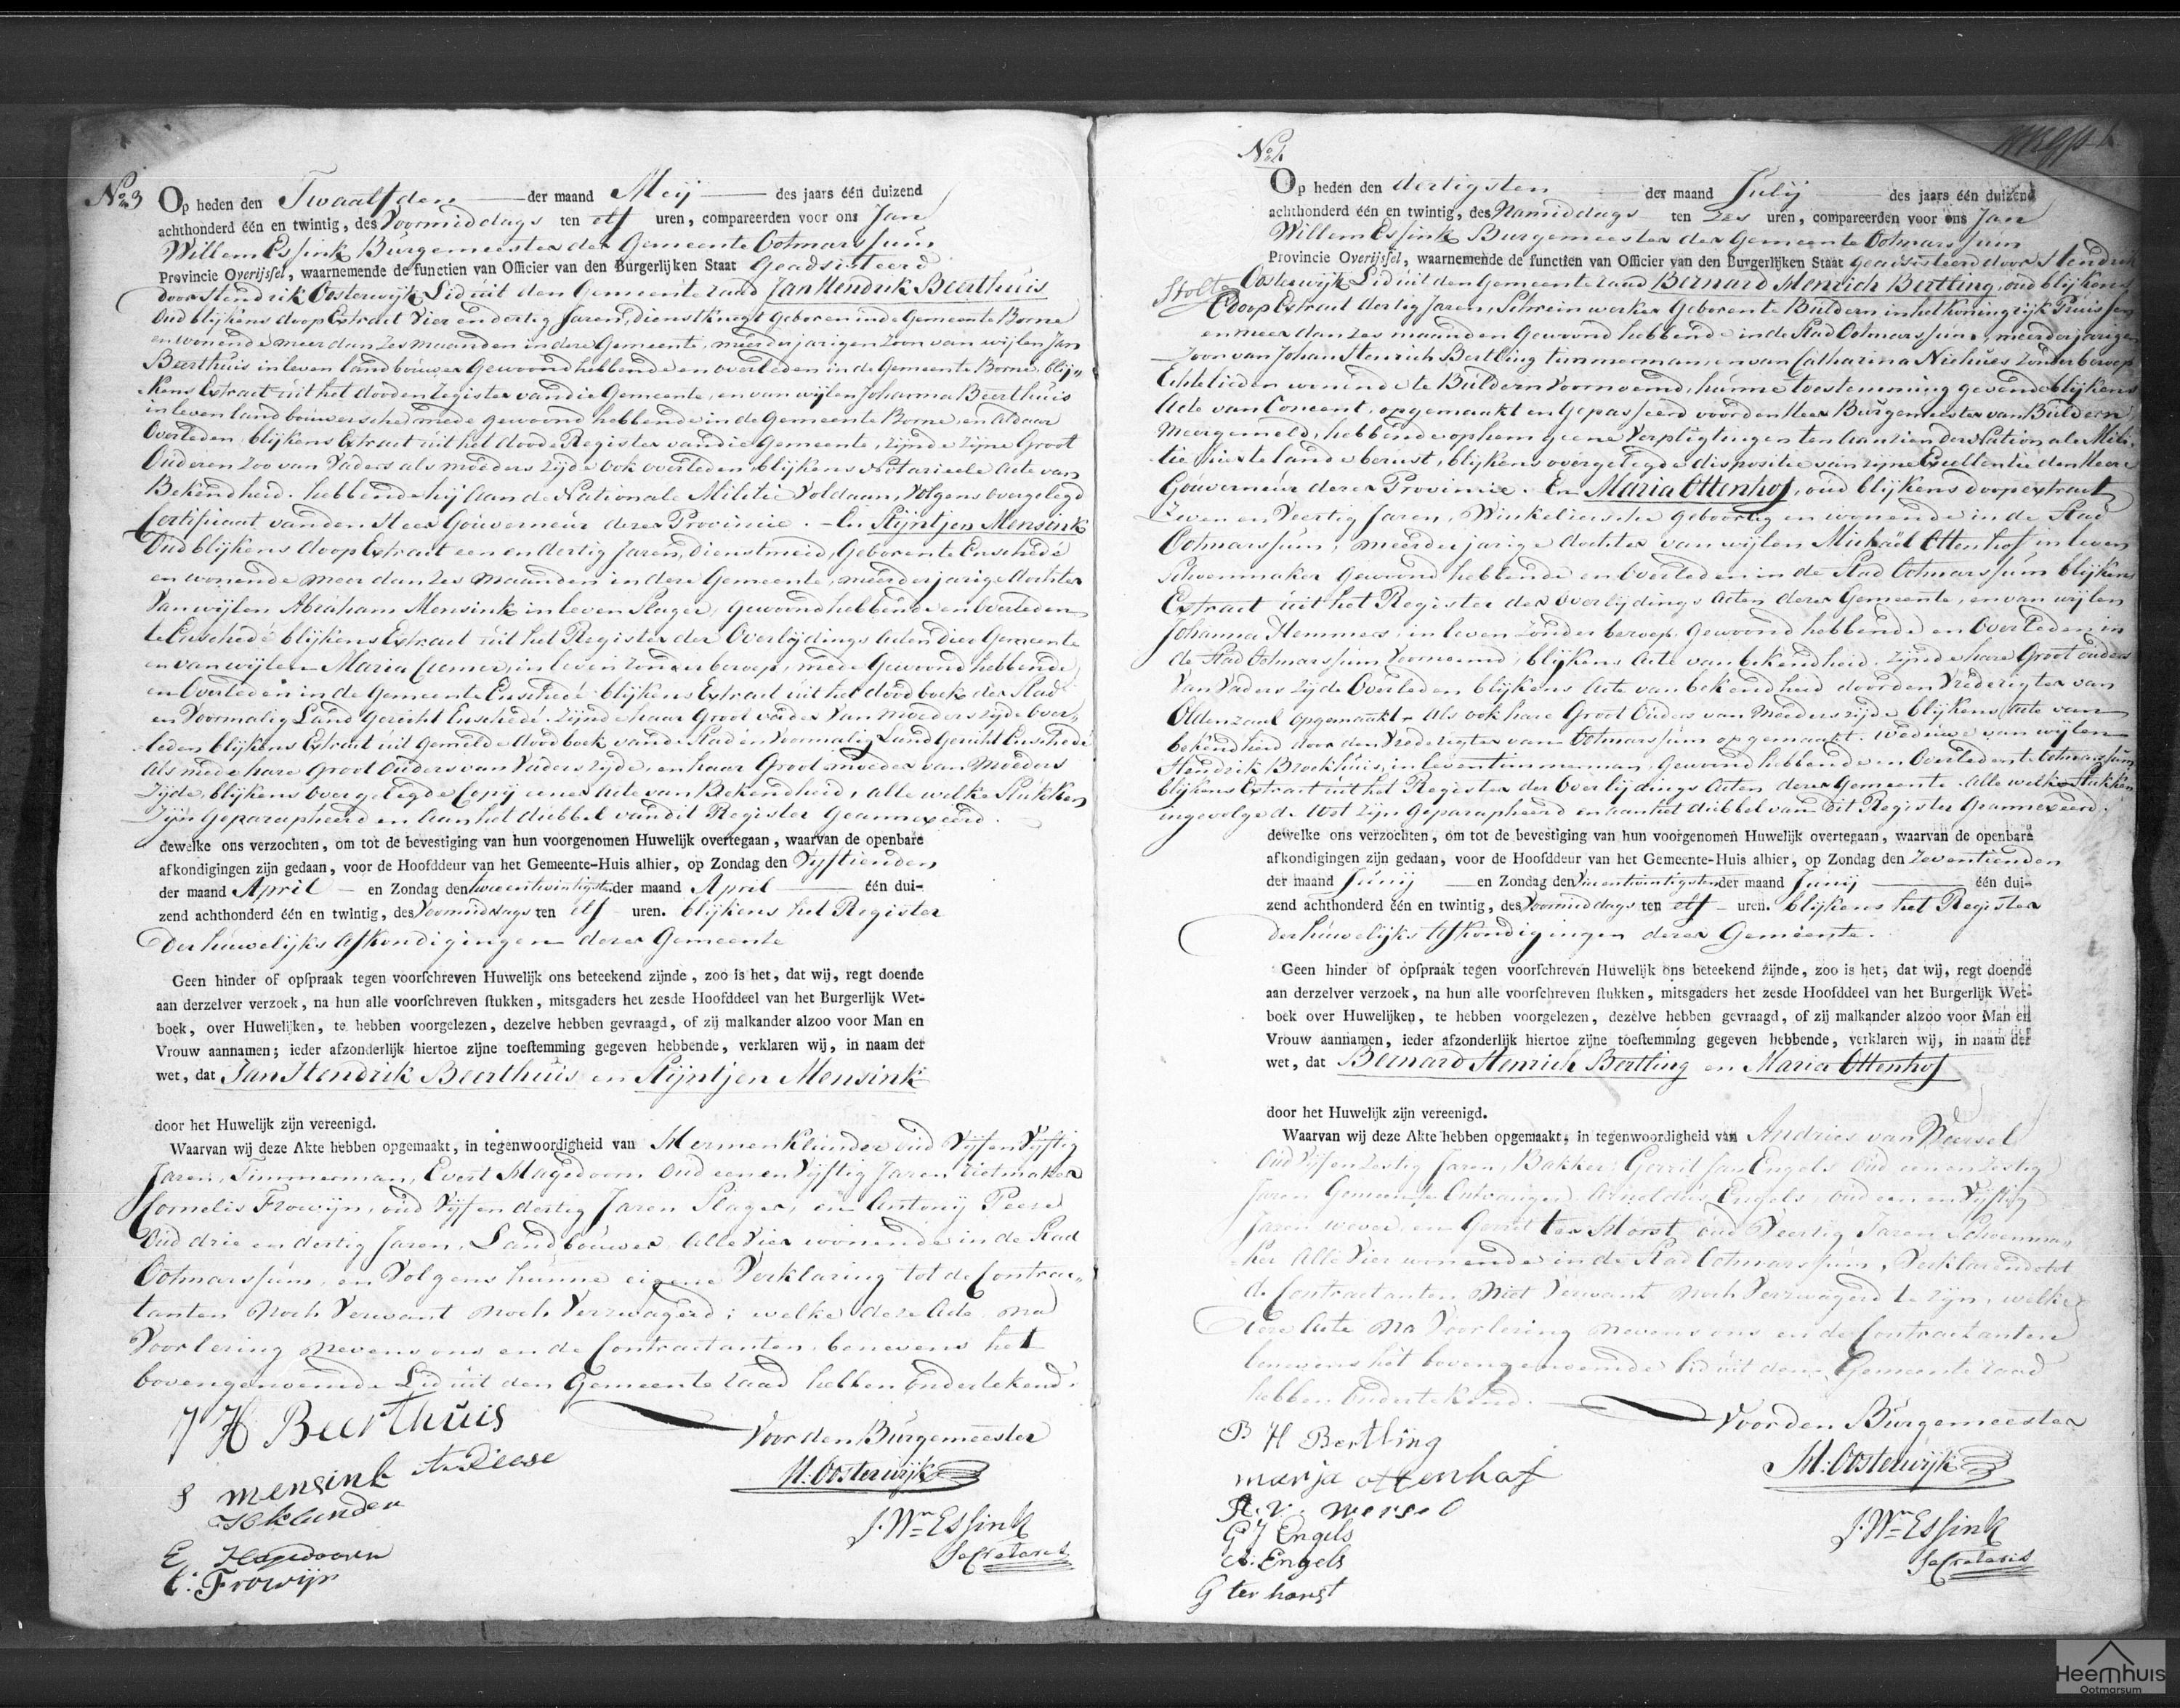 No 3 Op heden den Twaalfden der maand Meij des jaars één duizend
achthonderd één en twintig, des Voormiddags ten elf uren, compareerden voor ons Jan
Willem Essink Burgemeester der Gemeente Ootmarssum
Provincie Overijssel, waarnemende de functien van Officier van den Burgerlijken Staat Geadsisteerd
door Hendrik Oosterwijk Lid uit den Gemeente raad Jan Hendrik Beerthuis
Oud blijkens doop Extract Vier en dertig Jaren, dienstknegt Geboren in de Gemeente Borne
en wonende meer dan zes maanden in deze Gemeente, meerderjarigen zoon van wijlen Jan
Beerthuis in leven landbouwer Gewoond hebbende en overleden in de Gemeente Borne, blij„
kens Extract uit het dooden Register van die Gemeente, en van wijlen Johanna Beerthuis
in leven landbouwersche mede gewoond hebbende in de Gemeente Borne, en aldaar
Overleden, blijkens Extract uit het doode Register van die Gemeente, zijnde zijne Groot
Ouderen zoo van Vaders als moeders zijde ook overleden blijkens Notarieele Acte van
Bekendheid. hebbende hij aan de Nationale Militie Voldaan, Volgens overgelegd
Certificaat van den Heer Gouverneur dezer Provincie. – En Stijntjen Mensink
Oud blijkens doop Extract een en dertig Jaren, dienstmeid, Geboren te Enschedé
en wonende meer dan zes maanden in deze Gemeente, meerderjarige dochter
Van wijlen Abraham Mensink in leven Slager, gewoond hebbende en overleden
te Enschedé blijkens Extract uit het Register der Overlijdings Acten dier Gemeente
en van wijlen Maria in leven zonder beroep, mede Gewoond hebbende
en Overleden in de Gemeente Enschedé blijkens Extract uit het doodboek der Stad
en Voormalig Land Gericht Enschedé. zijnde haar Groot vader van moeders zijde over„
leden blijkens Extract uit gemelde doodboek van de Stad en Voormalig Land Gericht Enschedé
als mede hare Groot Ouders van Vaders zijde, en haar Groot moeder van Moeders
zijde, blijkens overgelegde Copij eener Acte van Bekendheid, alle welke Stukken
zijn Geparapheerd en aan het dubbel van dit Register Geannexeerd.
dewelke ons verzochten, om tot de bevestiging van hun voorgenomen Huwelijk overtegaan, waarvan de openbare
afkondigingen zijn gedaan, voor de Hoofddeur van het Gemeente-Huis alhier, op Zondag den Vijftienden
der maand April en Zondag den tweeentwintigsten der maand April één dui-
zend achthonderd één en twintig, des Voormiddags ten elf uren. blijkens het Register
Der huwelijks Afkondigingen dezer Gemeente
Geen hinder of opspraak tegen voorschreven Huwelijk ons beteekend zijnde, zoo is het, dat wij, regt doende
aan derzelver verzoek, na hun alle voorschreven stukken, mitsgaders het zesde Hoofddeel van het Burgerlijk Wet-
boek, over Huwelijken, te hebben voorgelezen, dezelve hebben gevraagd, of zij malkander alzoo voor Man en
Vrouw aannamen; ieder afzonderlijk hiertoe zijne toestemming gegeven hebbende, verklaren wij, in naam der
wet, dat Jan Hendrik Beerthuis en Stijntjen Mensink
door het Huwelijk zijn vereenigd.
Waarvan wij deze Akte hebben opgemaakt, in tegenwoordigheid van Hermen Klunder oud Vijf en Vijftig
Jaren, Timmerman, Evert Hagedoorn Oud een en Vijftig Jaren
Cornelis Frowijn, oud Vijf en dertig Jaren Slager, en Antonij Peese
Oud drie en dertig Jaren, Landbouwer alle Vier wonende in de Stad
Ootmarssum, en Volgens hunne eigene Verklaring tot de Contrac„
tanten noch Verwant noch Verzwagerd; welke deze Acte na
Voorlezing nevens ons en de Contractanten, benevens het
bovengenoemde Lid uit den Gemeente raad hebben ondertekend.
J H Beerthuis
S mensink
H klunder
E Hagedoorn
C: Frowijn
Voor den Burgemeester
H: Oosterwijk
J. Wm Essink
Secretaris
No 4
Op heden den dertigsten der maand Julij des jaars één duizend
achthonderd één en twintig, des Namiddags ten zes uren, compareerden voor ons Jan
Willem Essink Burgemeester der Gemeente Ootmarssum
Provincie Overijssel, waarnemende de functien van Officier van den Burgerlijken Staat geadsisteerd door Hendrik
Oosterwijk Lid uit den Gemeente raad Bernard Henrich Bertling, oud blijkens
doop Extract dertig Jaren, Schrein werker Geboren te Buldern in het Koningrijk Pruissen
en meer dan zes maanden Gewoond hebbende in de Stad Ootmarssum, meerderjarige
Zoon van Johan Henrich Bertling timmerman, en van Catharina Niehues zonder beroep
Echtelieden wonende te Buldern voornoemd, hunne toestemming gevende blijkens
Acte van Concent, opgemaakt en Gepasseerd voor den Heer Burgemeester van Buldern
Meergemeld, hebbende op hem geene Verpligtingen ten aanzien der Nationale Mili„
tie hier te lande berust, blijkens overgelegde dispositie van zijne Excellentie den Heere
Gouverneur dezer Provincie. En Maria Ottenhof, oud blijkens doop extract
Zeven en Veertig Jaren, Winkeliersche geboortig en wonende in de Stad
Ootmarssum, meerderjarige dochter van wijlen Michaël Ottenhof in leven
Schoenmaker gewoond hebbende en Overleden in de Stad Ootmarssum blijkens
Extract uit het Register der overlijdings Acten dezer Gemeente, en van wijlen
Johanna Hemmers, in leven zonder beroep, gewoond hebbende en Overleden in
de Stad Ootmarssum Voornoemd, blijkens Acte van bekendheid. zijnde hare Groot ouders
Van Vaders zijde Overleden blijkens Acte van bekendheid door den Vrederigter van
Oldenzaal opgemaakt – als ook hare Groot Ouders van Moeders zijde blijkens Acte van
bekendheid door den Vrederigter van Ootmarssum opgemaakt. weduwe van wijlen
Hendrik Brockhuis, in leven timmerman, gewoond hebbende en Overleden te Ootmarssum
blijkens Extract uit het Register der Overlijdings Acten dezer Gemeente. Alle welke Stukken
ingevolge de Wet zijn geparapheerd en aan het dubbel van dit Register Geannexeerd.
dewelke ons verzochten, om tot de bevestiging van hun voorgenomen Huwelijk overtegaan, waarvan de openbare
afkondigingen zijn gedaan, voor de Hoofddeur van het Gemeente-Huis alhier, op Zondag den Zeventienden
der maand Junij en Zondag den Vierentwintigsten der maand Junij één dui-
zend achthonderd één en twintig, des Voormiddags ten elf uren. blijkens het Register
der huwelijks Afkondigingen dezer Gemeente.
Geen hinder of opspraak tegen voorschreven Huwelijk ons beteekend zijnde, zoo is het, dat wij, regt doende
aan derzelver verzoek, na hun alle voorschreven stukken, mitsgaders het zesde Hoofddeel van het Burgerlijk Wet-
boek over Huwelijken, te hebben voorgelezen, dezelve hebben gevraagd, of zij malkander alzoo voor Man en
Vrouw aannamen, ieder afzonderlijk hiertoe zijne toestemming gegeven hebbende, verklaren wij, in naam der
wet, dat Bernard Henrich Bertling en Maria Ottenhof
door het Huwelijk zijn vereenigd.
Waarvan wij deze Akte hebben opgemaakt, in tegenwoordigheid van Andries van
Oud Vijf en zestig Jaren, Bakker, Gerrit Jan Engels oud een en zestig
Jaren Gemeente Ontvanger, Engels, oud een en Vijftig
Jaren wever, en Gerrit ter Horst oud Veertig Jaren Schoenma„
ker alle Vier wonende in de Stad Ootmarssum, Verklarende tot
de Contractanten niet Verwant noch Verzwagerd te zijn, welke
deze Acte na Voorlezing nevens ons en de Contractanten
benevens het bovengenoemde lid uit den Gemeente raad
hebben Ondertekend.
B H Bertling
marja ottenhof
A. V. mersel
G J Engels
A: Engels
G ter horst
Voor den Burgemeester
H: Oosterwijk
J. Wm Essink
Secretaris
Heemhuis
Ootmarsum